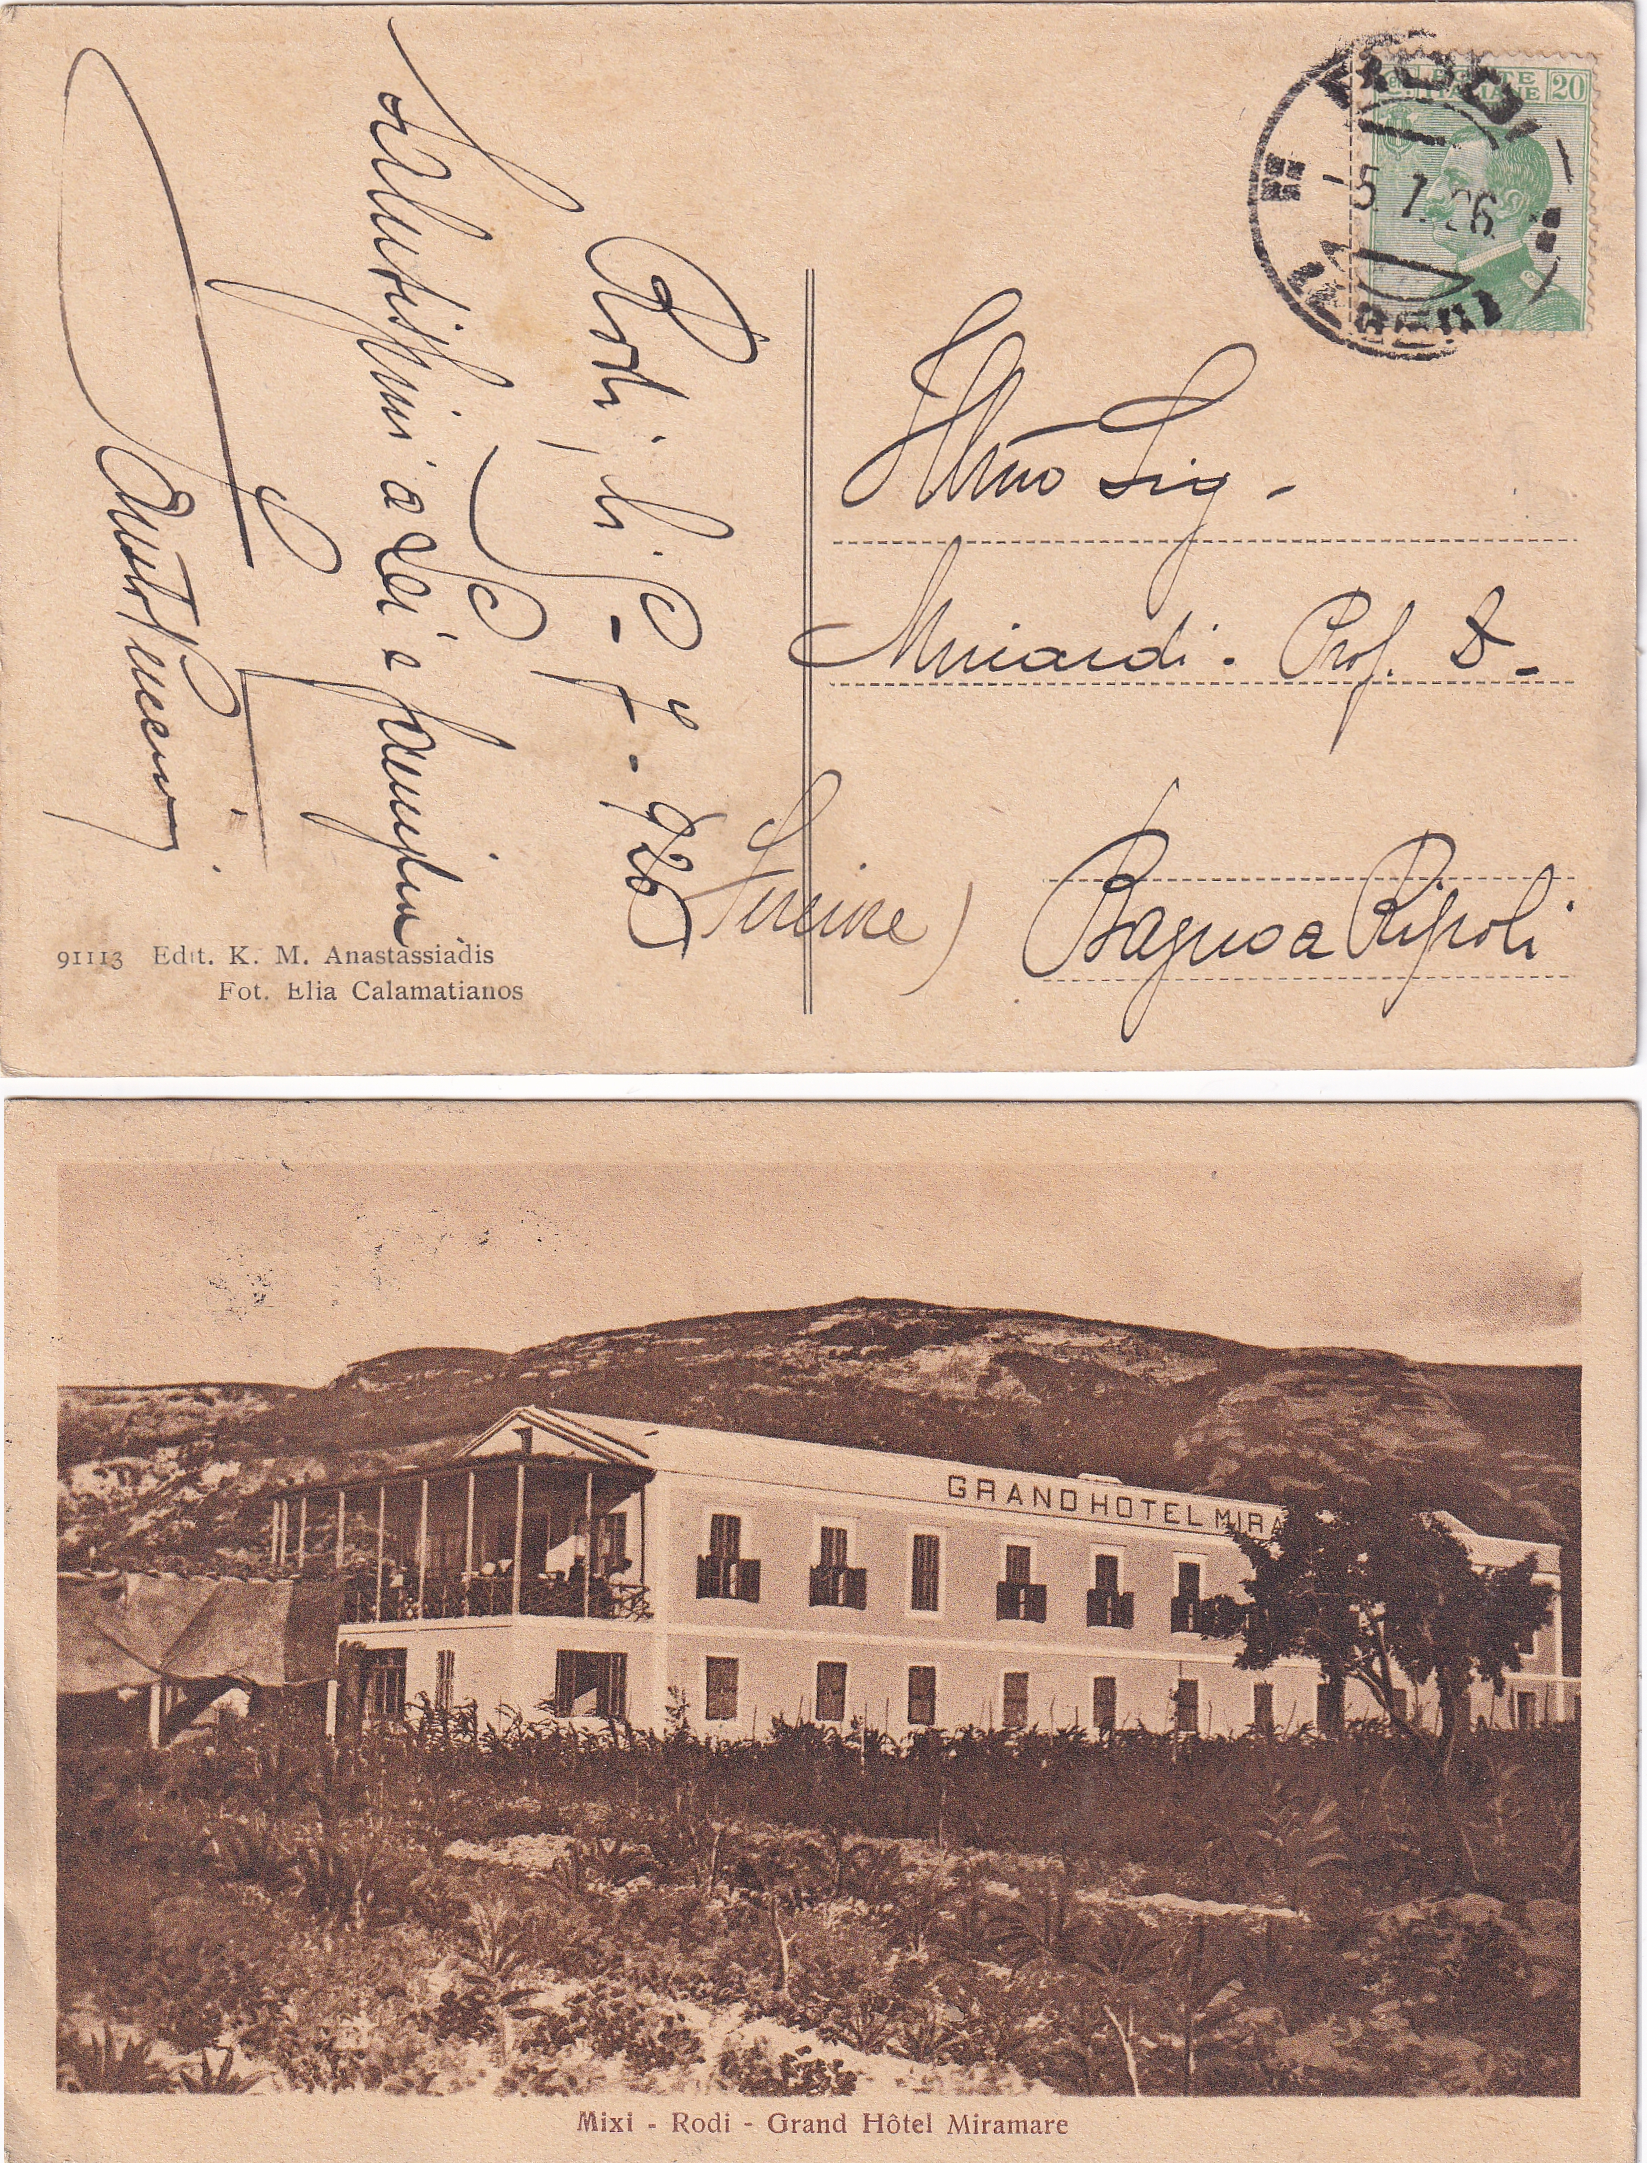 POSTE
ITALIANE
20
RODI
5.7.26
EGEO
Rodi, li 5-7-926
Salutissimi a Lei e famiglia
Illmo Sig.
Prof. D.
Bagno a Ripoli
(Firenze)
91113 Edit. K. M. Anastassiadis
Fot. Elia Calamatianos
GRAND HOTEL MIRA
Mixi - Rodi - Grand Hôtel Miramare